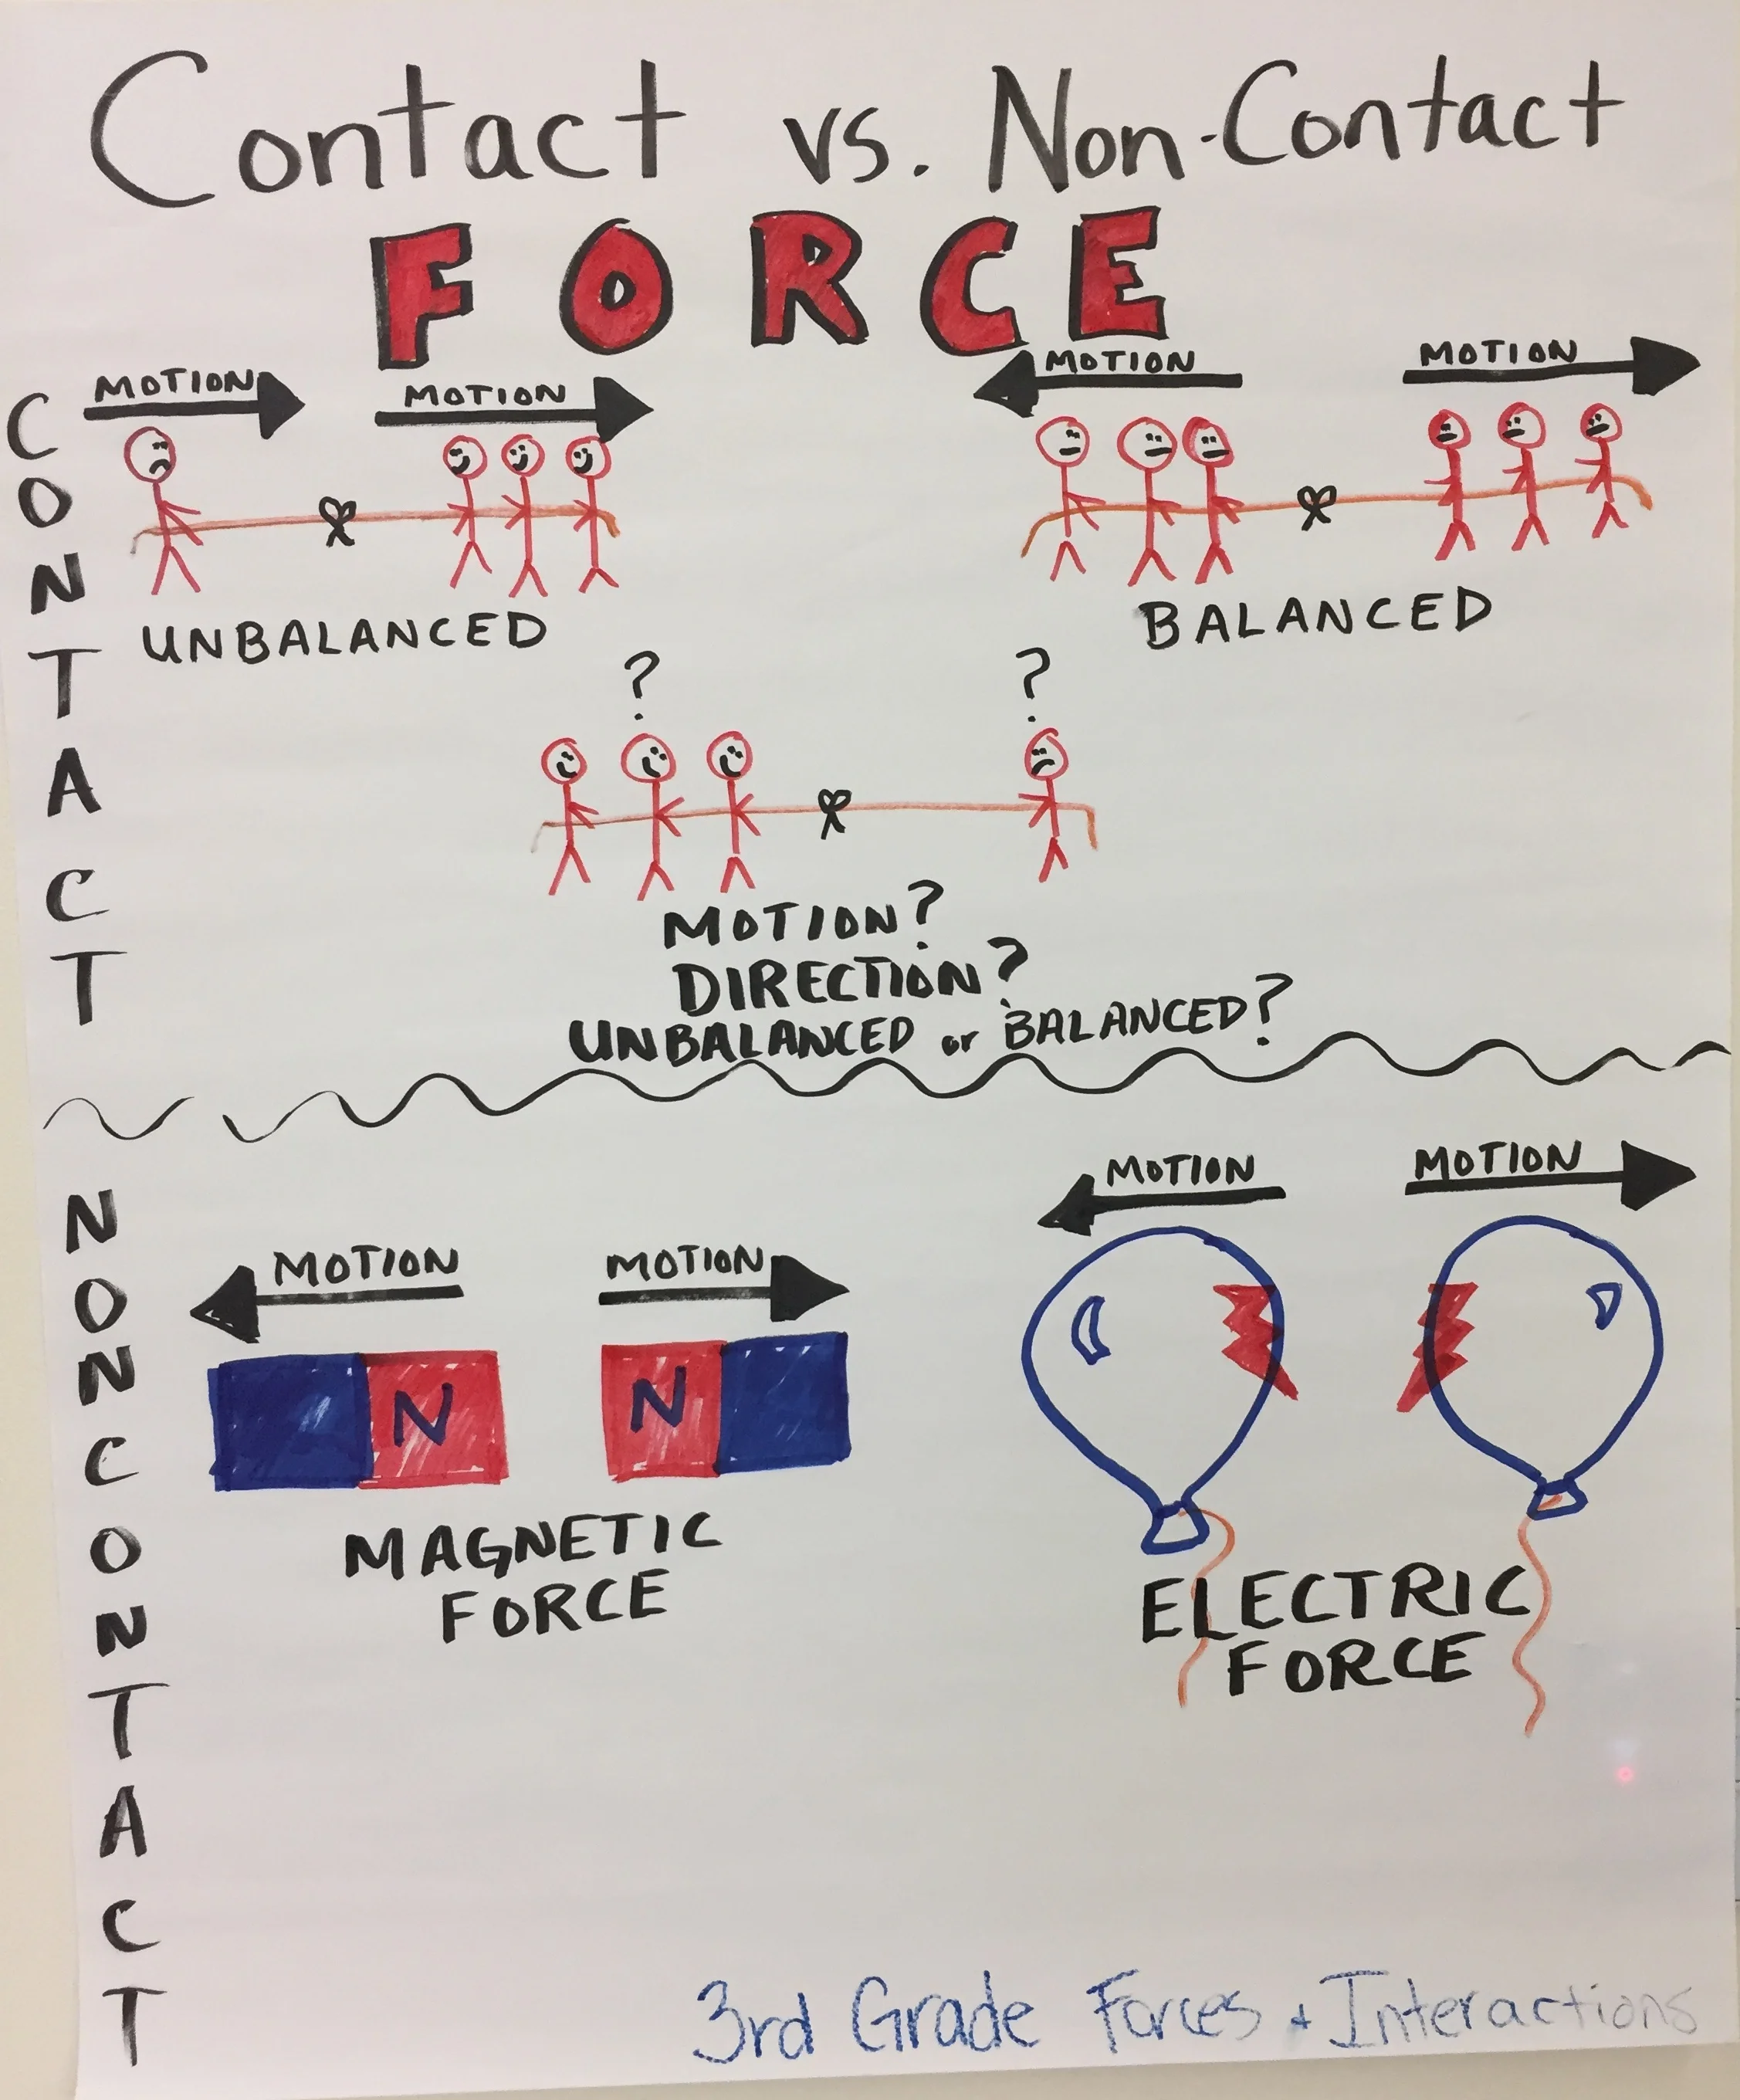 Contact vs. Non-Contact
FORCE
CONTACT
MOTION
MOTION
MOTION
MOTION
UNBALANCED
BALANCED
?
?
MOTION?
DIRECTION?
UNBALANCED or BALANCED?
NONCONTACT
MOTION
MOTION
MOTION
MOTION
N
N
MAGNETIC
FORCE
ELECTRIC
FORCE
3rd Grade Forces + Interactions